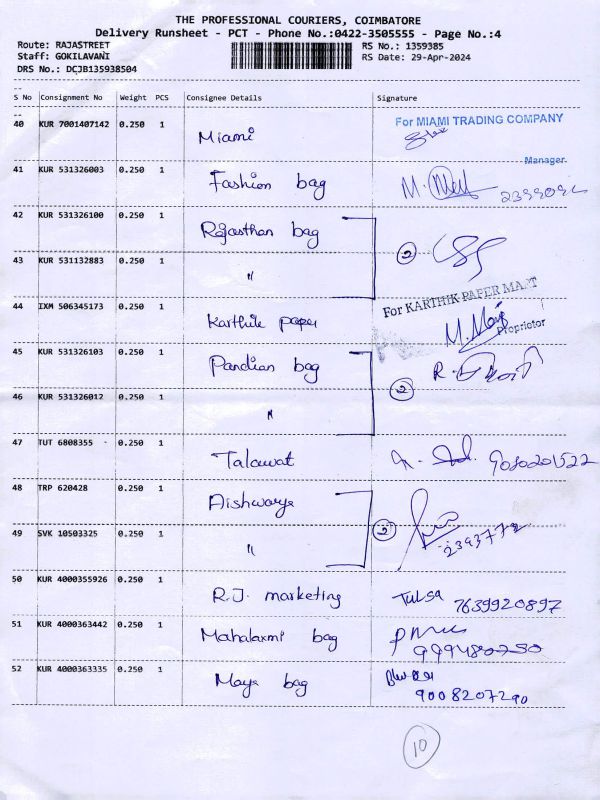 THE PROFESSIONAL COURIERS, COIMBATORE
Delivery Runsheet - PCT - Phone No.:0422-3505555 - Page No.:4
Route: RAJASTREET RS No.: 1359385
Staff: GOKILAVANI RS Date: 29-Apr-2024
DRS No.: DCJB135938504
S No Consignment No Weight PCS Consignee Details Signature
40 KUR 7001407142 0.250 1 Miami For MIAMI TRADING COMPANY
Manager
41 KUR 531326003 0.250 1 Fashion bag M.
42 KUR 531326100 0.250 1 Rajasthan bag
2
43 KUR 531132883 0.250 1 "
44 IXM 506345173 0.250 1 Karthik paper For KARTHIK PAPER MART
Proprietor
45 KUR 531326103 0.250 1 Pandian bag R.
2
46 KUR 531326012 0.250 1 "
47 TUT 6808355 0.250 1 Talawat 9080201522
48 TRP 620428 0.250 1 Aishwarya
2
49 SVK 10503325 0.250 1 " 2393772
50 KUR 4000355926 0.250 1 R.J. marketing Tulsa 7639920897
51 KUR 4000363442 0.250 1 Mahalaxmi bag 999480750
52 KUR 4000363335 0.250 1 Maya bag 9008207290
10